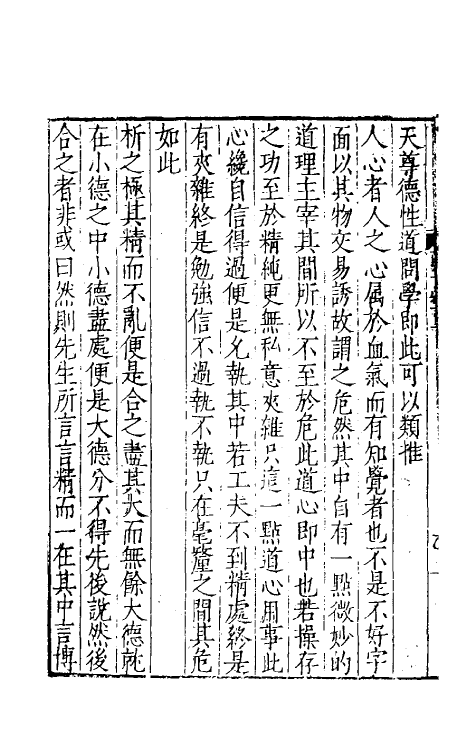 天尊德性道問學即此可以類推
人心者人之心属於血氣而有知覺者也不是不好字
面以其物交易誘故謂之危然其中自有一點微妙的
道理主宰其間所以不至於危此道心即中也若操存
之功至於精純更無私意夾雜只這一點道心用事此
心纔自信得過便是允執其中若工夫不到精處終是
有夾雜終是勉強信不過執不執只在毫釐之間其危
如此
析之極其精而不亂便是合之盡其大而無餘大德就
在小德之中小德盡處便是大德分不得先後說然後
合之者非或曰然則先生所言言精而一在其中言博